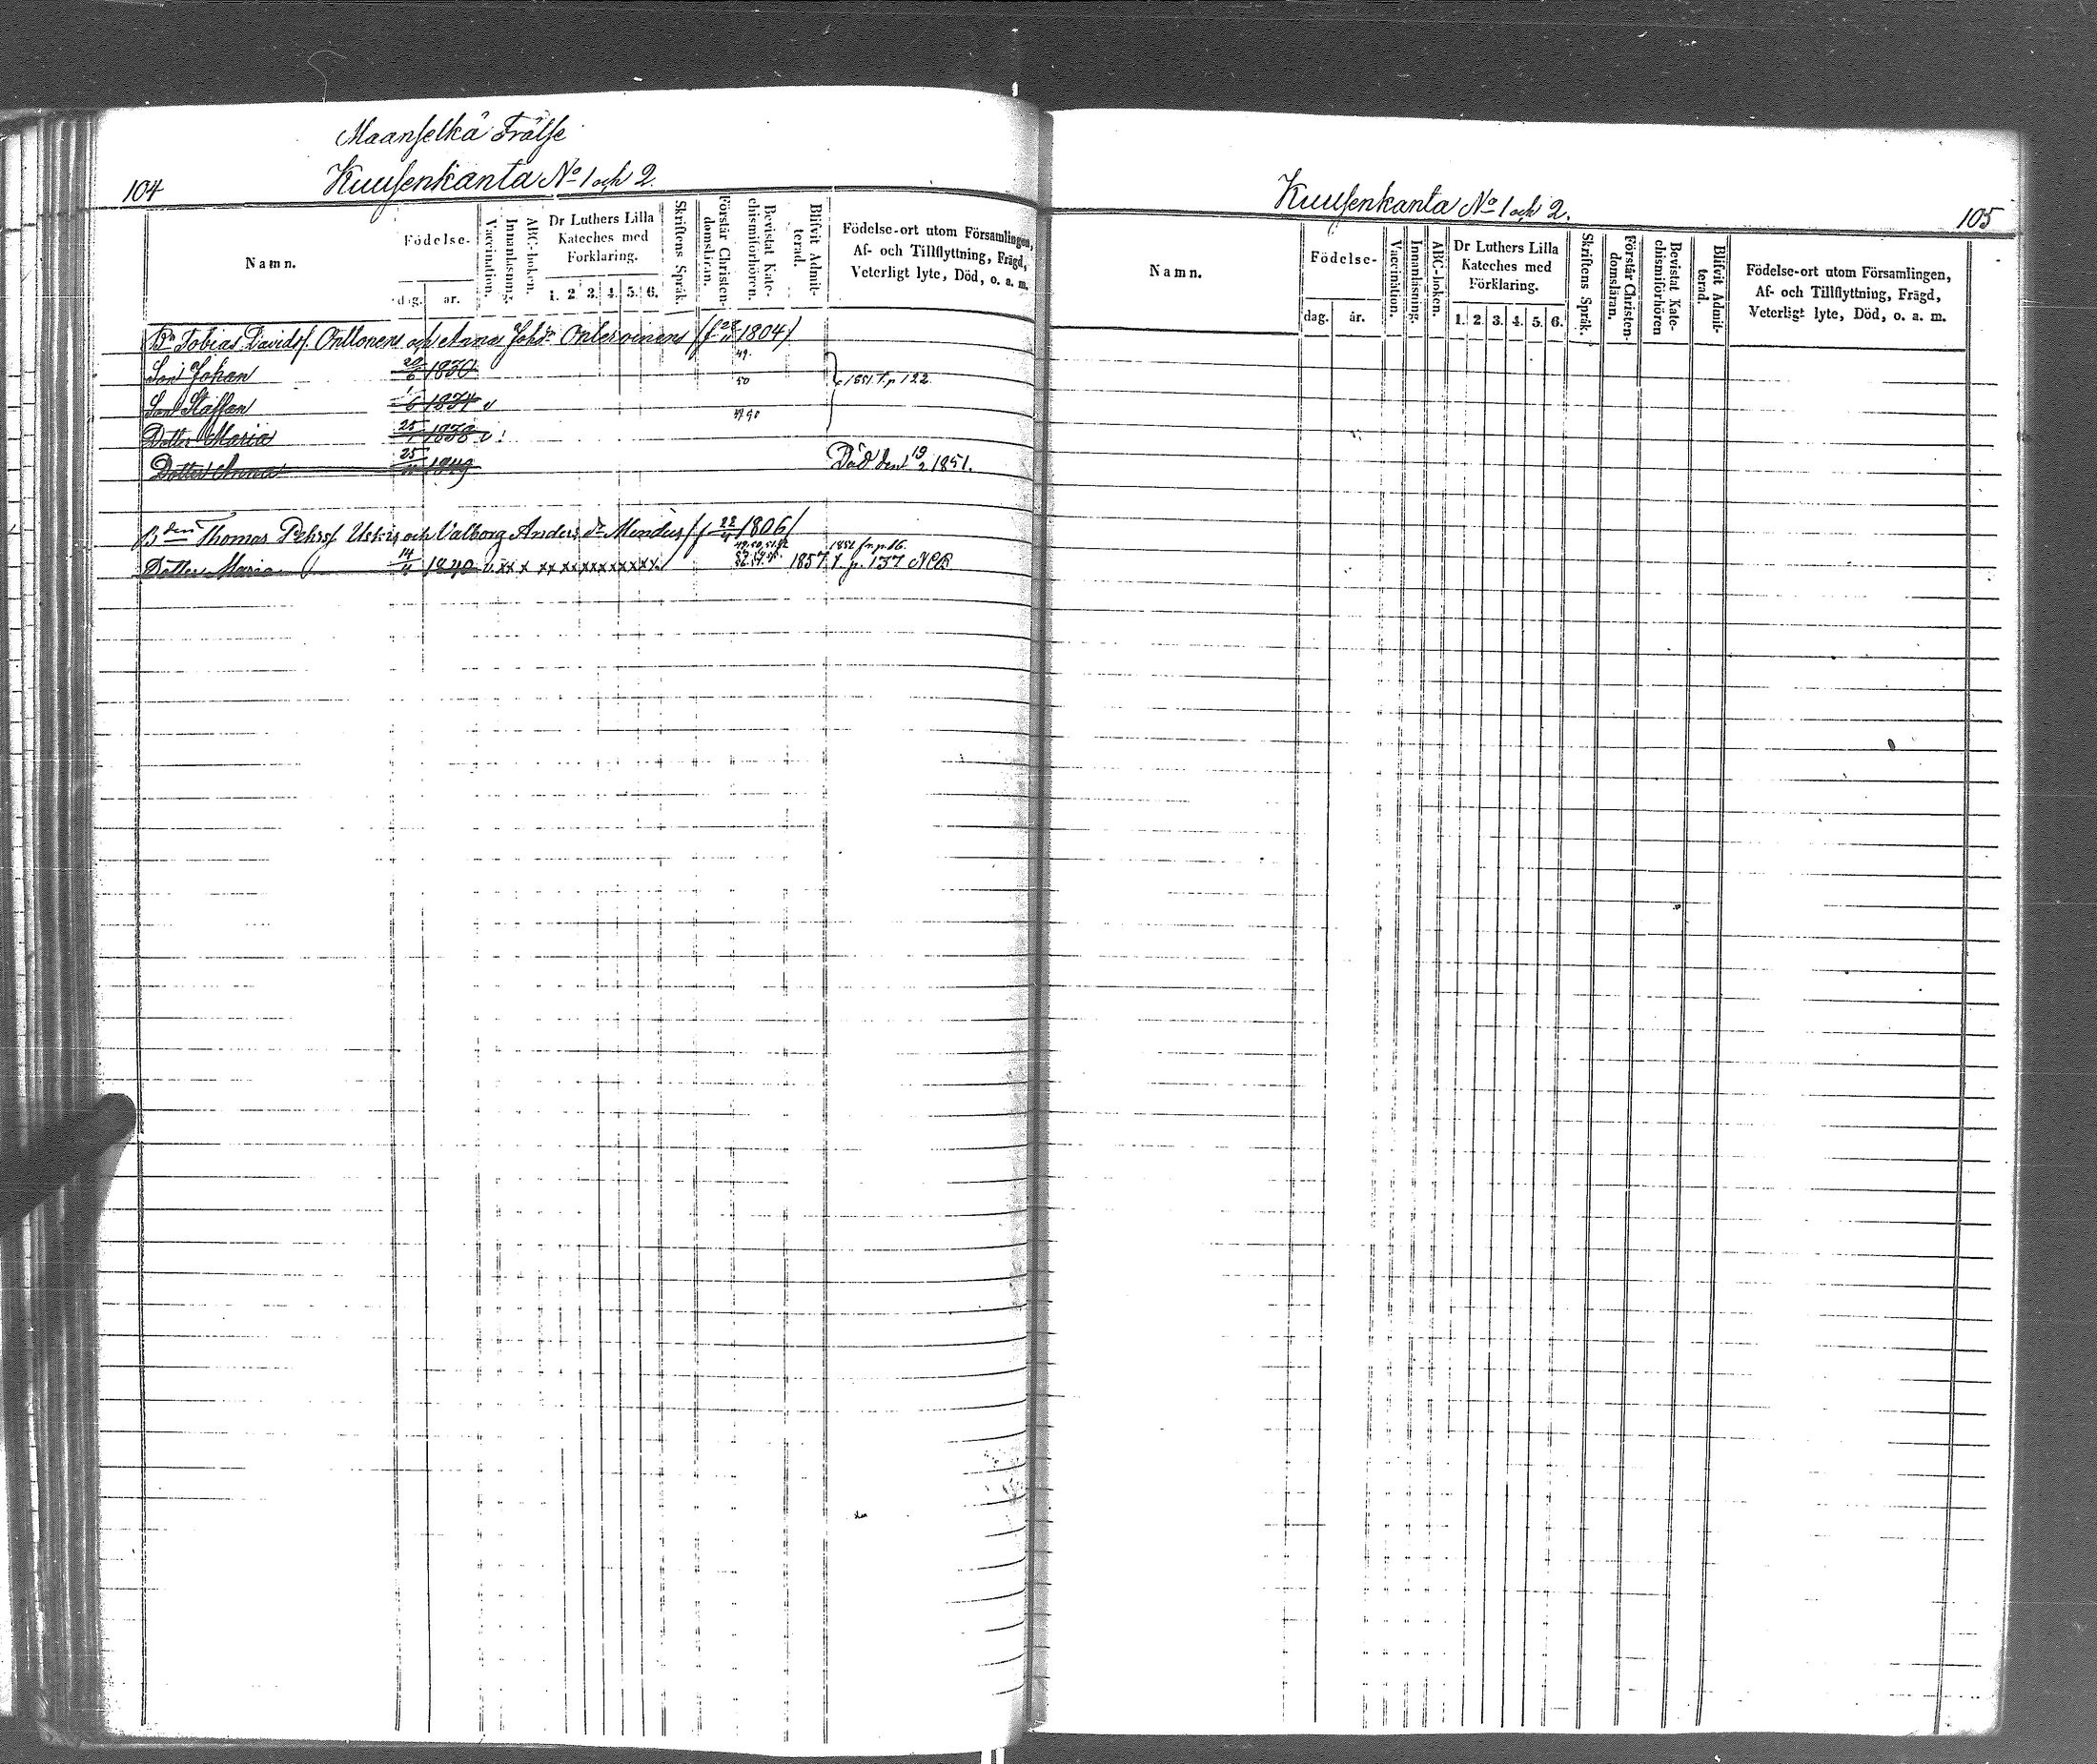 Maanselkä Frälse
104 Kuusenkanta No 1 och 2.
Namn.
Födelse-
dag. år.
Vaccination.
Innanläsning.
ABC-boken.
Dr Luthers Lilla
Kateches med
Förklaring.
1. 2. 3. 4. 5. 6.
Skriftens Språk.
Förstår Christen-
domsläran.
Bevistat Kate-
chismiförhören.
Blifvit Admit-
terad.
Födelse-ort utom Församlingen,
Af- och Tillflyttning, Frägd,
Veterligt lyte, Död, o. a. m.
Bn Tobias Davidsf och Anna Joh:dr (f 1804)
49.
Son Johan 20/6 1830
50 1851 t. p 122.
Son Staffan 1834 v
49 50
Dotter Maria 25/1 1838 v
Dotter Anna 25 1849 Död den 19/2 1851.
Bden Thomas Pehrsf Uski och Valborg Anders dr (f 22 1806)
49. 50. 51. 52 1852 fr p. 16.
Dotter Maria 14 1840 v. xx x xx x x x x x x x x 1857 t. p. 137 NCB
Kuusenkanta No 1 och 2. 105
Namn.
Födelse-
dag. år.
Vaccination.
Innanläsning.
ABC-boken.
Dr Luthers Lilla
Kateches med
Förklaring.
1. 2. 3. 4. 5. 6.
Skriftens Språk.
Förstår Christen-
domsläran.
Bevistat Kate-
chismiförhören
Blifvit Admit-
terad.
Födelse-ort utom Församlingen,
Af- och Tillflyttning, Frägd,
Veterligt lyte, Död, o. a. m.